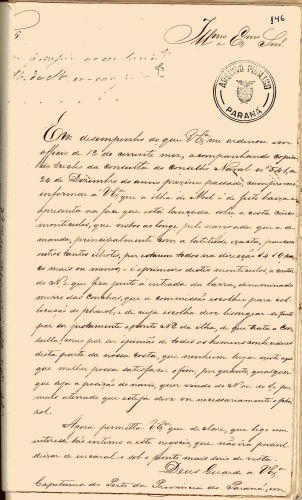 146
Illmo e Exmo Snr.
ARCHIVO PUBLICO
PARANÁ
Em desempenho do que V. Exa me ordenou em
officio de 12 do corrente mez, acompanhando copia
do trecho da consulta do Conselho Naval nº
24 de Dezembro do anno proximo passado, cumpre-me
informar a V. Exa que a ilha do Mel é de facto baixa e
apresenta na face que está lançada sobre a costa cinco
monticulos, que vistos ao longe pelo navio que a de-
manda, principalmente com a latitude exacta, parecem
outros tantos ilhotes, por estarem todos na direcção
mais ou menos; é o primeiro destes monticulos, a contar
do N. que fica junto á entrada da barra, denominado
morro das Conchas, que a commissão escolheu para col-
locação do pharol, e de cuja escolha deve lisongear-se
por ser justamente a ponta NE da ilha, de que trata a Con-
sulta, como por ser opinião de todos os homens conhecedores
desta parte da nossa costa, que nenhum lugar existe aqui
que melhor possa satisfazer o fim, por quanto, qualquer
que seja a posição do navio, quer vindo do N ou do S, por
mais aterrado que esteja deve ver necessariamente o pha-
rol.
Agora permitta V. Exa que declare, que ligo um
interesse tão intimo a este negocio, que não irá possivel
deixar de encaral-o sob o ponto mais serio de vista.
Deus Guarde a V. Exa
Capitania do Porto da Provincia do Paraná, em